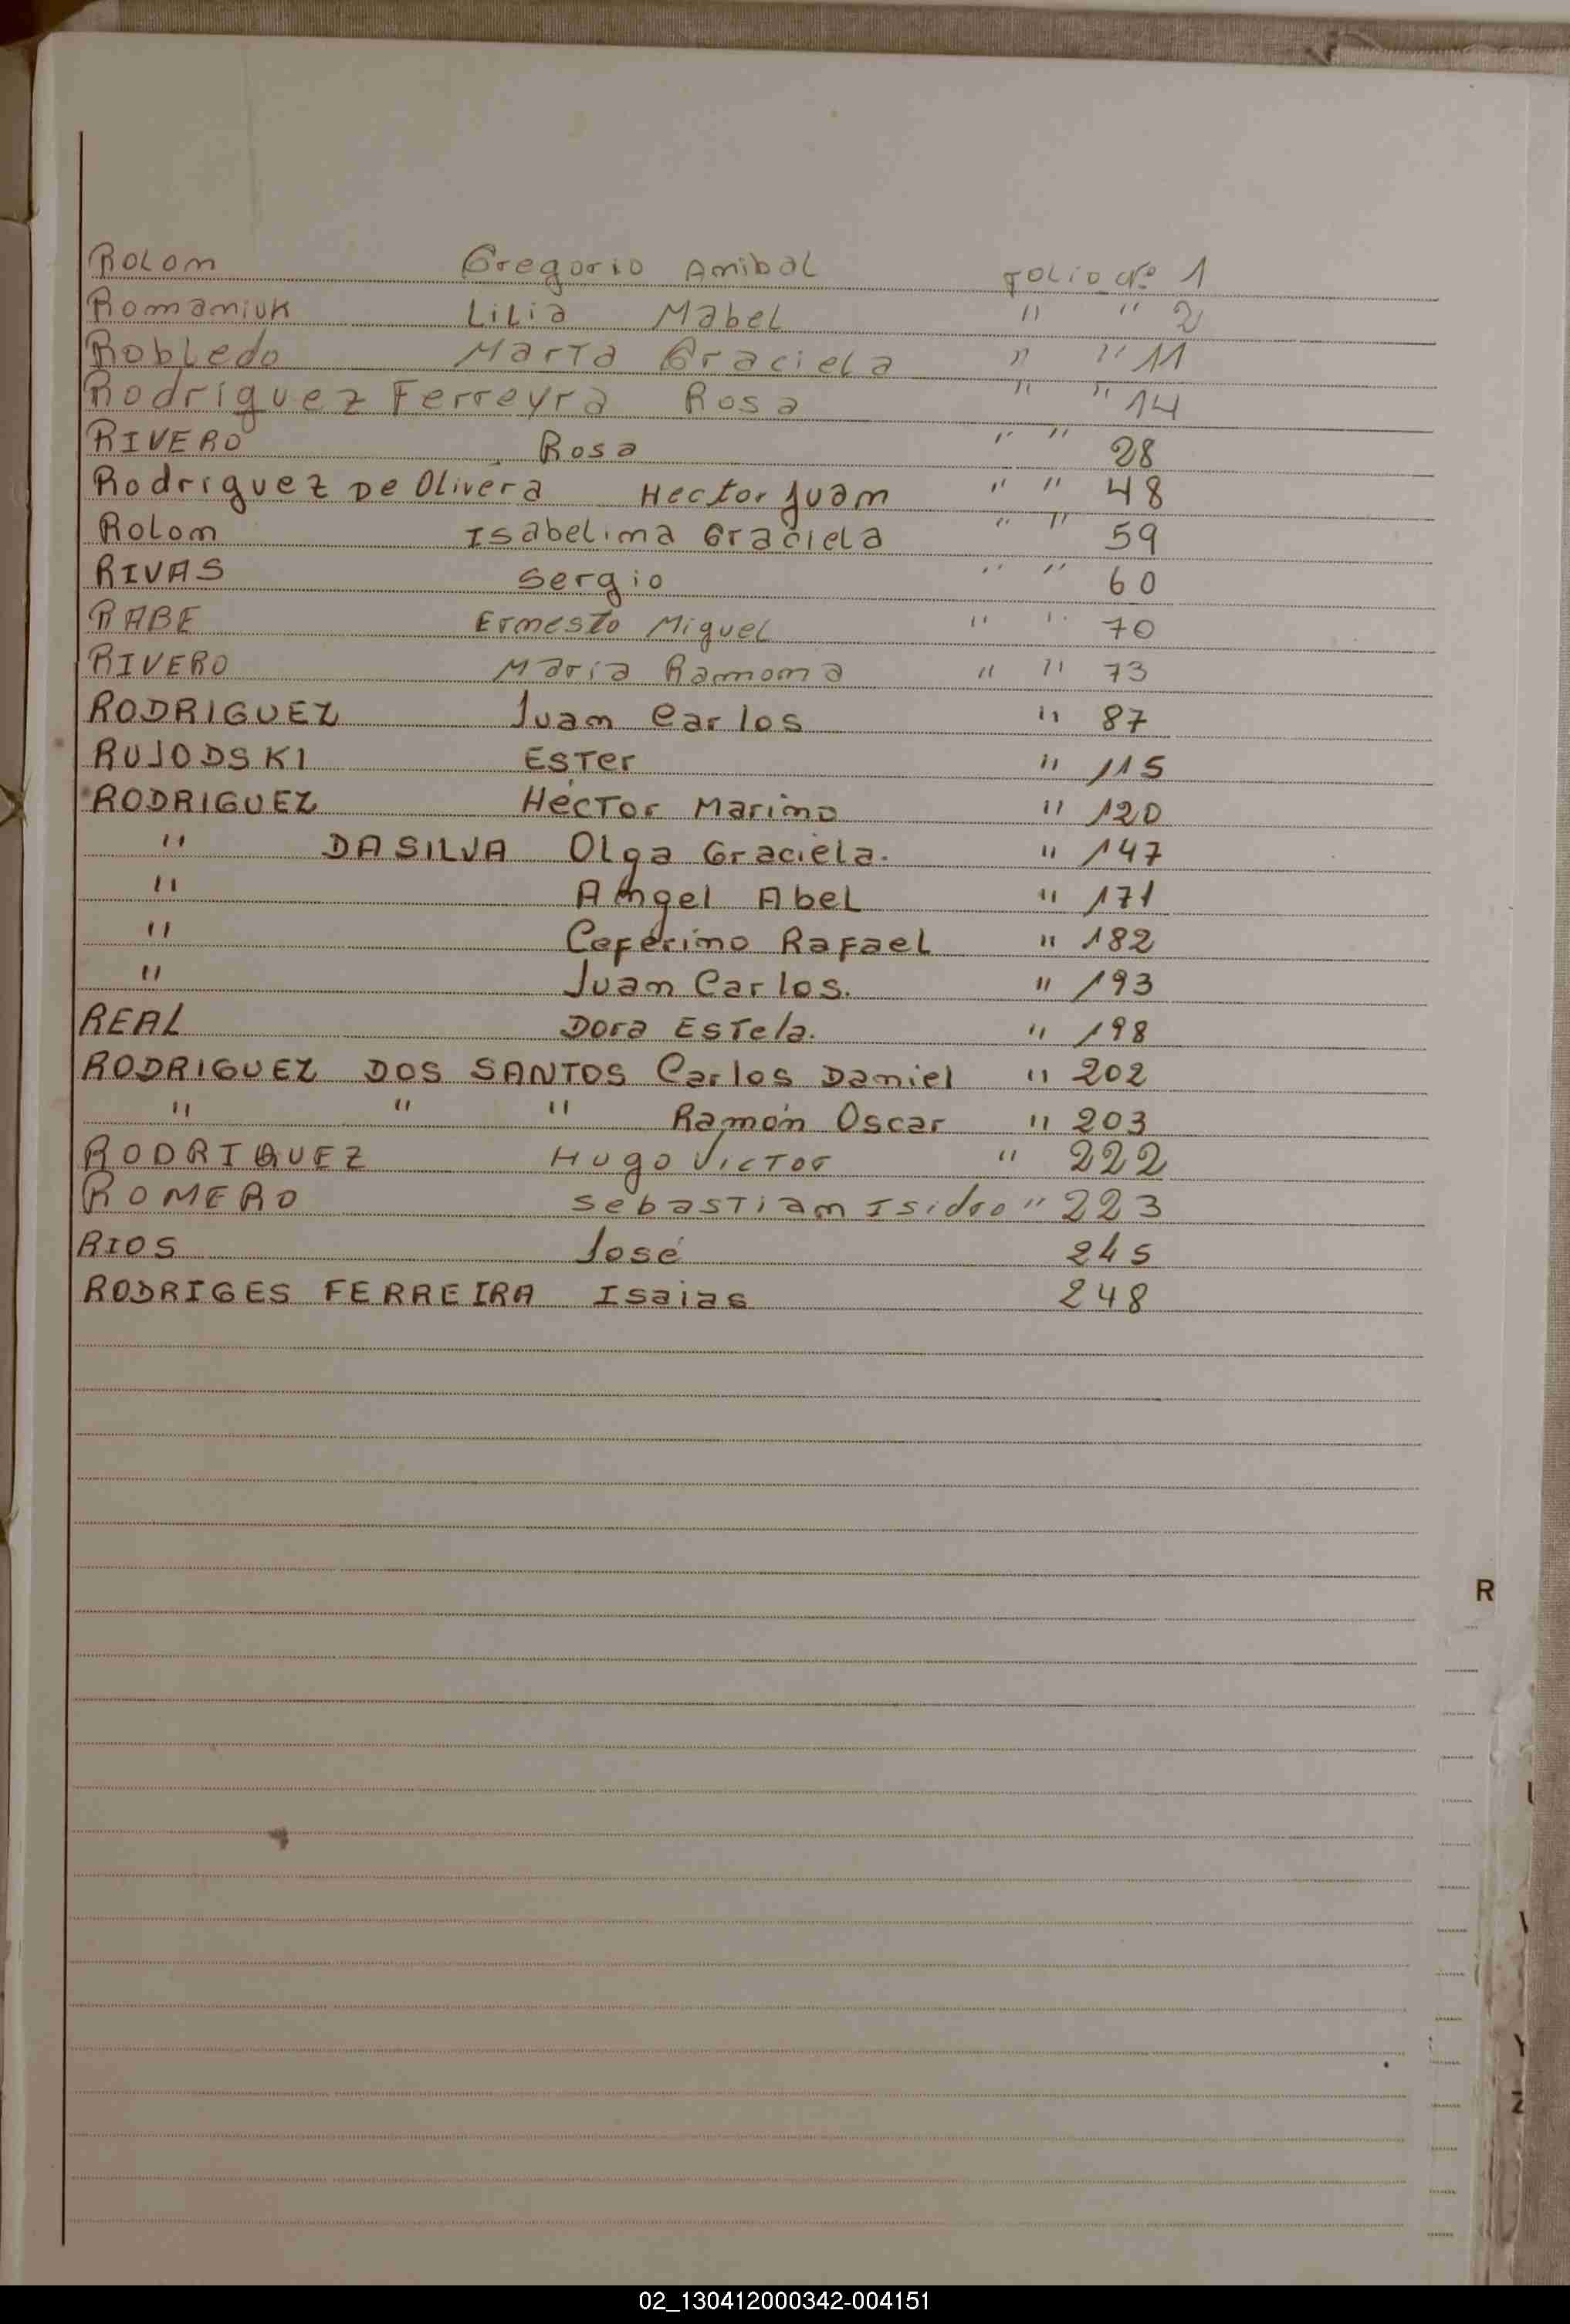 Rolon Gregorio Anibal Folio Nº 1
Romaniuk Lilia Mabel " " 2
Robledo Marta Graciela " " 11
Rodriguez Ferreyra Rosa " " 14
RIVERO Rosa " " 28
Rodriguez De Olivera Hector Juan " " 48
Rolon Isabelina Graciela " " 59
RIVAS Sergio " " 60
RABE Ernesto Miguel " " 70
RIVERO Maria Ramona " " 73
RODRIGUEZ Juan Carlos " 87
RUJODSKI Ester " 115
RODRIGUEZ Héctor Marino " 120
" DASILVA Olga Graciela. " 147
" Angel Abel " 171
" Ceferino Rafael " 182
" Juan Carlos. " 193
REAL Dora Estela. " 198
RODRIGUEZ DOS SANTOS Carlos Daniel " 202
" " " Ramón Oscar " 203
RODRIGUEZ Hugo Victor " 222
ROMERO Sebastian Isidro " 223
RIOS José 245
RODRIGES FERREIRA Isaias 248
R
Y
Z
02_130412000342-004151